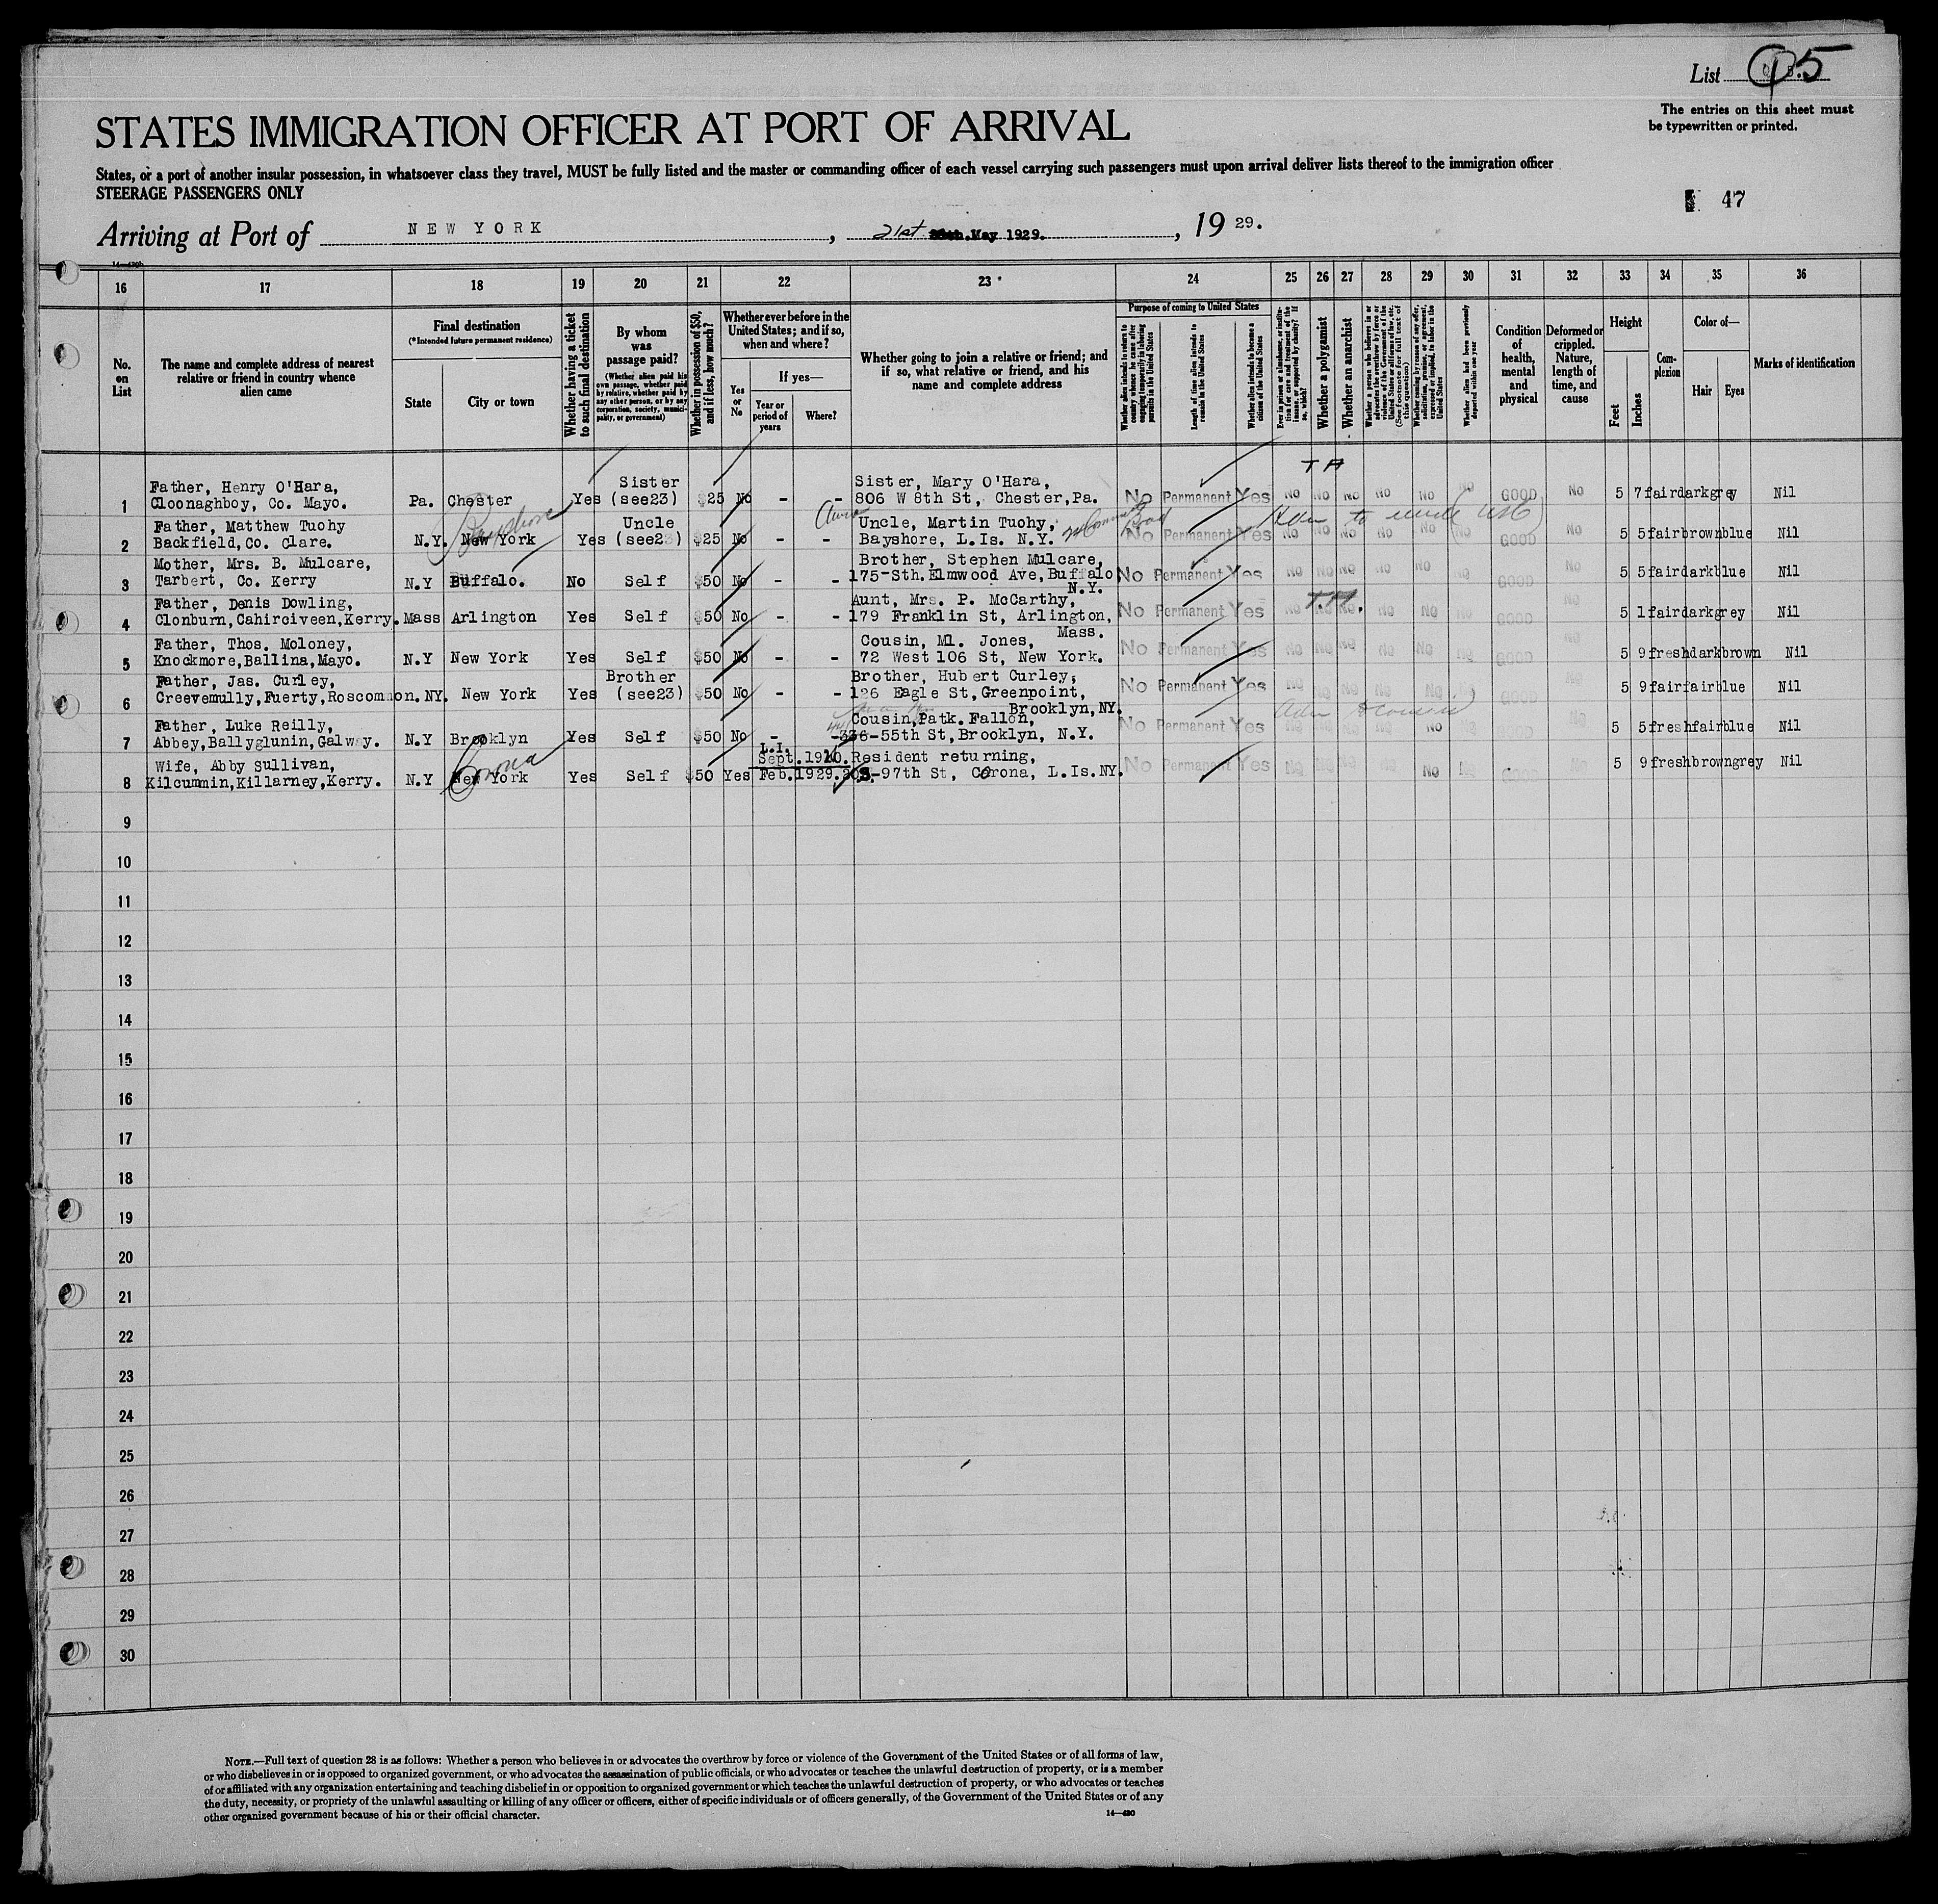 List 5
The entries on this sheet must
be typewritten or printed.
STATES IMMIGRATION OFFICER AT PORT OF ARRIVAL
States, or a port of another insular possession, in whatsoever class they travel, MUST be fully listed and the master or commanding officer of each vessel carrying such passengers must upon arrival deliver lists thereof to the immigration officer
STEERAGE PASSENGERS ONLY
47
Arriving at Port of NEW YORK, 21st May 1929., 19 29.
14—430b
16 17 18 19 20 21 22 23 24 25 26 27 28 29 30 31 32 33 34 35 36
No. on List
The name and complete address of nearest relative or friend in country whence alien came
Final destination
(*Intended future permanent residence)
State
City or town
Whether having a ticket to such final destination
By whom was passage paid?
(Whether alien paid his own passage, whether paid by relative, whether paid by any other person, or by any corporation, society, municipality, or government)
Whether in possession of $50, and if less, how much?
Whether ever before in the United States; and if so, when and where?
Yes or No
If yes—
Year or period of years
Where?
Whether going to join a relative or friend; and if so, what relative or friend, and his name and complete address
Purpose of coming to United States
Whether alien intends to return to country whence he came after engaging temporarily in laboring pursuits in the United States
Length of time alien intends to remain in the United States
Whether alien intends to become a citizen of the United States
Ever in prison or almshouse, or institution for care and treatment of the insane, or supported by charity? If so, which?
Whether a polygamist
Whether an anarchist
Whether a person who believes in or advocates the overthrow by force or violence of the Government of the United States or all forms of law, etc. (See footnote for full text of this question)
Whether coming by reason of any offer, solicitation, promise, or agreement, expressed or implied, to labor in the United States
Whether alien had been previously deported within one year
Condition of health, mental and physical
Deformed or crippled. Nature, length of time, and cause
Height
Feet
Inches
Complexion
Color of—
Hair
Eyes
Marks of identification
T A
1 Father, Henry O'Hara, Cloonaghboy, Co. Mayo. Pa. Chester Yes Sister (see23) $25 No - - Sister, Mary O'Hara, 806 W 8th St, Chester, Pa. No Permanent Yes No No No No No No GOOD No 5 7 fair dark grey Nil
Bayshore
Adm to uncle
2 Father, Matthew Tuohy Backfield, Co. Clare. N.Y. New York Yes Uncle (see23) $25 No - - Uncle, Martin Tuohy, Bayshore, L.Is. N.Y. No Permanent Yes No No No No No No GOOD No 5 5 fair brown blue Nil
3 Mother, Mrs. B. Mulcare, Tarbert, Co. Kerry N.Y Buffalo. No Self $50 No - - Brother, Stephen Mulcare, 175-Sth. Elmwood Ave, Buffalo N.Y. No Permanent Yes No No No No No No GOOD No 5 5 fair dark blue Nil
T.A.
4 Father, Denis Dowling, Clonburn, Cahirciveen, Kerry. Mass Arlington Yes Self $50 No - - Aunt, Mrs. P. McCarthy, 179 Franklin St, Arlington, Mass. No Permanent Yes No No No No No No GOOD No 5 1 fair dark grey Nil
5 Father, Thos. Moloney, Knockmore, Ballina, Mayo. N.Y New York Yes Self $50 No - - Cousin, Ml. Jones, 72 West 106 St, New York. No Permanent Yes No No No No No No GOOD No 5 9 fresh dark brown Nil
6 Father, Jas. Curley, Creevemully, Fuerty, Roscommon. NY. New York Yes Brother (see23) $50 No - - Brother, Hubert Curley, 126 Eagle St, Greenpoint, Brooklyn, NY. No Permanent Yes No No No No No No GOOD No 5 9 fair fair blue Nil
7 Father, Luke Reilly, Abbey, Ballyglunin, Galway. N.Y Brooklyn Yes Self $50 No - - Cousin, Patk. Fallon, 336-55th St, Brooklyn, N.Y. No Permanent Yes No No No No No No GOOD No 5 5 fresh fair blue Nil
Corona
8 Wife, Abby Sullivan, Kilcummin, Killarney, Kerry. N.Y New York Yes Self $50 Yes L.I. Sept. 1920. Feb. 1929. Resident returning, 97th St, Corona, L.Is. NY. No Permanent Yes No No No No No No GOOD No 5 9 fresh brown grey Nil
9
10
11
12
13
14
15
16
17
18
19
20
21
22
23
24
25
26
27
28
29
30
NOTE.—Full text of question 28 is as follows: Whether a person who believes in or advocates the overthrow by force or violence of the Government of the United States or of all forms of law,
or who disbelieves in or is opposed to organized government, or who advocates the assassination of public officials, or who advocates or teaches the unlawful destruction of property, or is a member
of or affiliated with any organization entertaining and teaching disbelief in or opposition to organized government or which teaches the unlawful destruction of property, or who advocates or teaches
the duty, necessity, or propriety of the unlawful assaulting or killing of any officer or officers, either of specific individuals or of officers generally, of the Government of the United States or of any
other organized government because of his or their official character.
14—430